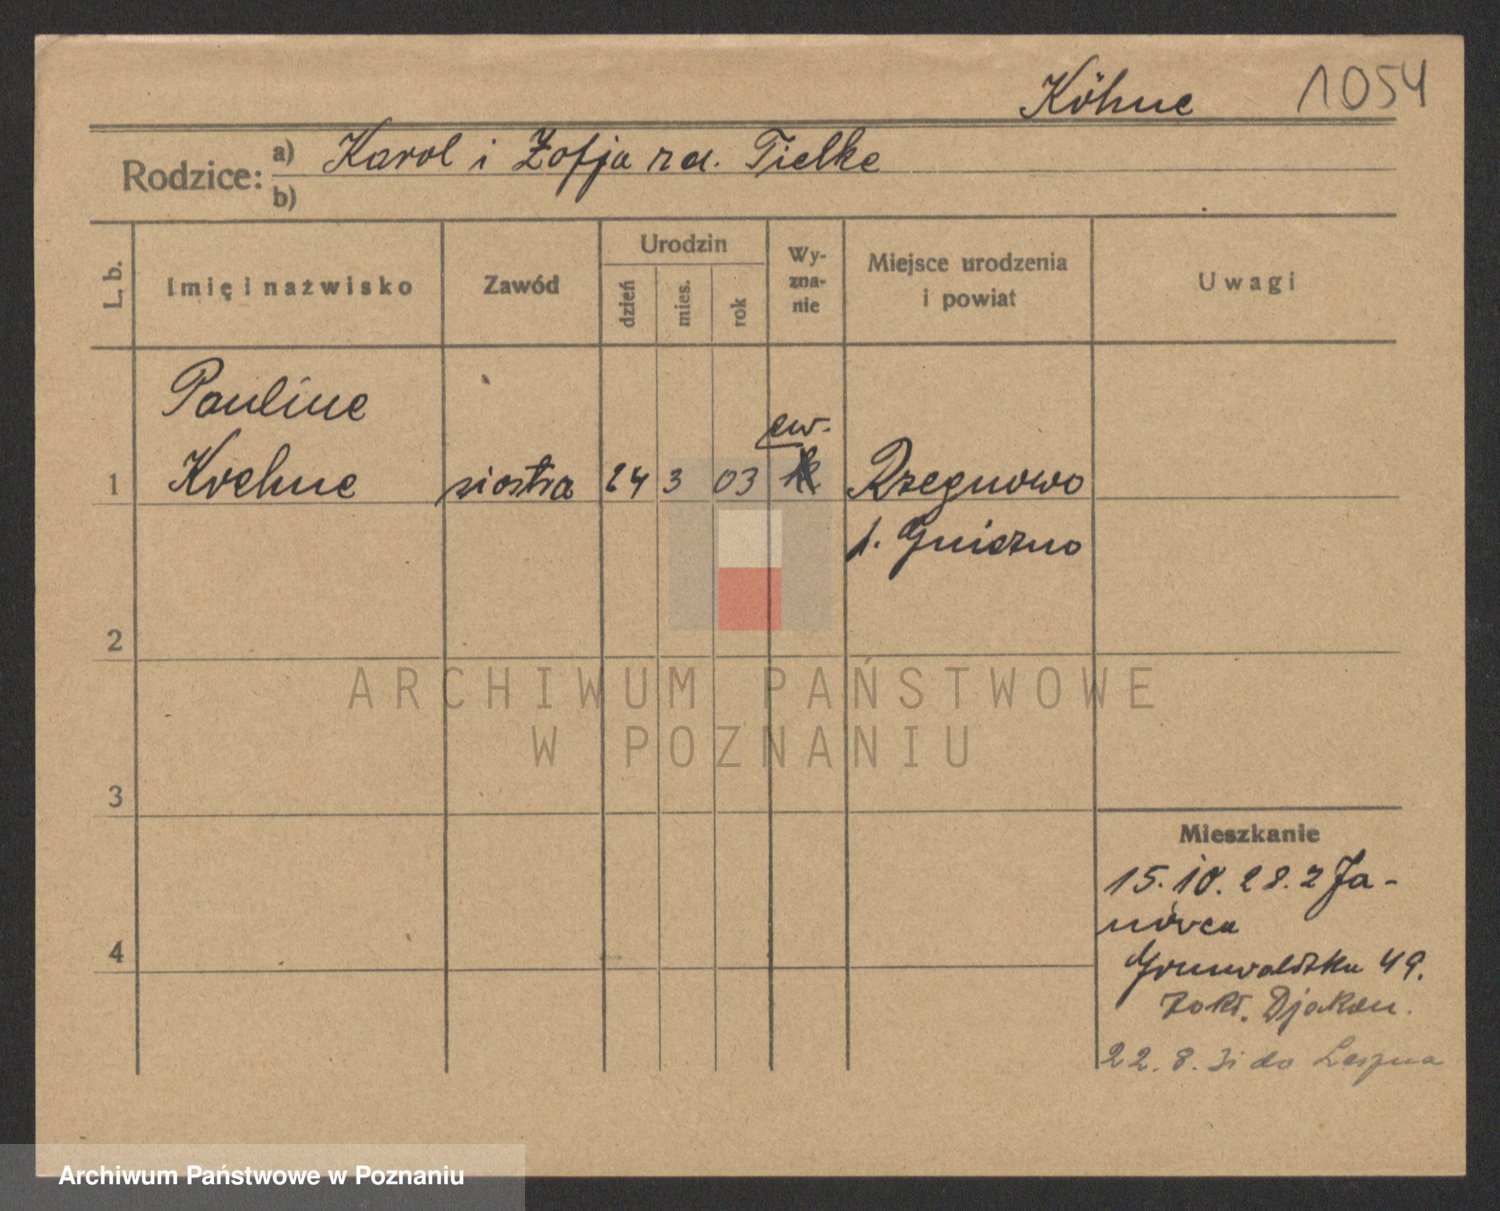 Köhne 1054
Rodzice: a) Karol i Zofja zd. Tielke
b)
L. b. Imię i nazwisko Zawód Urodzin dzień mies. rok Wy-
zna-
nie Miejsce urodzenia
i powiat Uwagi
Pauline
1 Koehne siostra 24 3 03 ew. k Rzegnowo
p. Gniezno
2
ARCHIWUM PAŃSTWOWE
W POZNANIU
3
Mieszkanie
15.10.28. z Ja-
nówca
4
Grunwaldzka 49.
Zakł. Djakon.
22.8.31 do
Archiwum Państwowe w Poznaniu